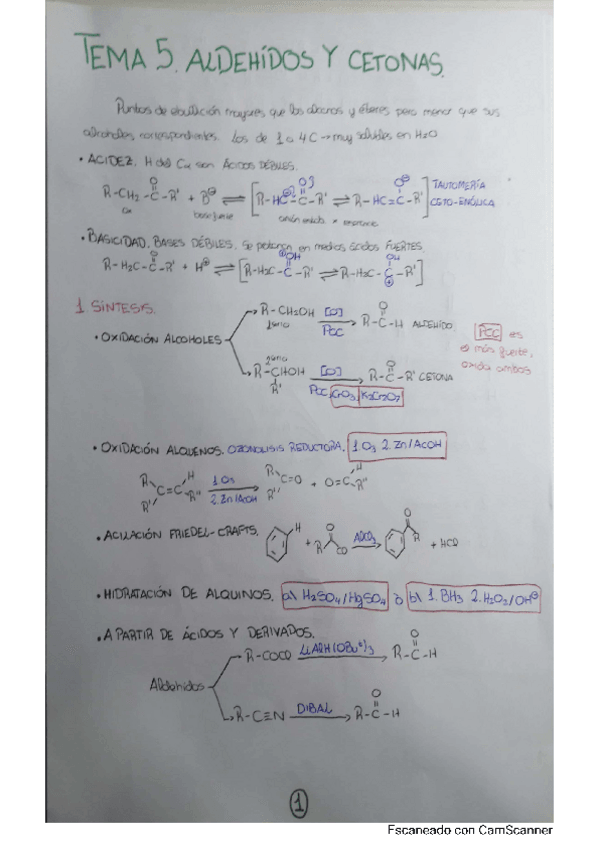 TEMA 5. ALDEHÍDOS Y CETONAS.
Puntos de ebullición mayores que los alcanos y éteres pero menor que sus
alcoholes correspondientes. Los de 1 a 4C → muy solubles en H2O
• ACIDEZ. H del Cα son ÁCIDOS DÉBILES.
R-CH2-C-R' + B⊖ ⇌ [R-HC-C-R' ⇌ R-HC=C-R'] TAUTOMERÍA
O O O⊖ CETO-ENÓLICA
base fuerte
• BASICIDAD. BASES DÉBILES. Se protonan en medios ácidos FUERTES.
R-H2C-C-R' + H⊕ ⇌ [R-H2C-C-R' ⇌ R-H2C-C-R']
O ⊕OH OH ⊕
1. SÍNTESIS.
• OXIDACIÓN ALCOHOLES
R-CH2OH [O] PCC R-C-H ALDEHÍDO.
1ario O
R-CHOH [O] R-C-R' CETONA
R' O
PCC, CrO3, K2Cr2O7
PCC es
más fuerte,
oxida ambos
• OXIDACIÓN ALQUENOS. OZONOLISIS REDUCTORA. 1. O3 2. Zn/AcOH
R R' C=C H R'' 1. O3 2. Zn/AcOH R R' C=O + O=C H R''
• ACILACIÓN FRIEDEL-CRAFTS.
H + R O Cl AlCl3 O R + HCl
• HIDRATACIÓN DE ALQUINOS. a) H2SO4/HgSO4 ò b) 1. BH3 2. H2O2/OH⊖
• A PARTIR DE ÁCIDOS Y DERIVADOS.
R-COCl LiAlH(OBuᵗ)3 R-C-H
O
Aldehidos
R-C≡N DIBAL R-C-H
O
1
Escaneado con CamScanner